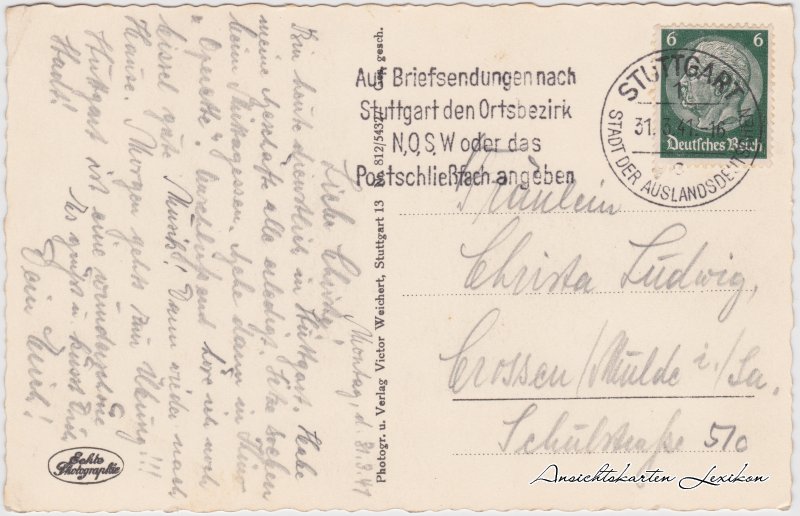 Montag, d. 31.3.41
Liebe Christa!
Bin heute dienstlich in Stuttgart. Habe
meine Geschäfte alle erledigt. Sitze soeben
beim Mittagessen. Gehe dann in Kino
"Operette". Anschließend höre ich noch
bissel gute Musik! Dann wieder nach
Hause. Morgen gehts zur Übung!!!
Stuttgart ist eine wunderschöne
Stadt!
Es grüßt u. küsst Dich
Dein Erich!
Echte
Photographie
Photogr. u. Verlag Victor Weichert, Stuttgart 13 Nr. 812/5432 Ges. gesch.
Auf Briefsendungen nach
Stuttgart den Ortsbezirk
N,O,S,W oder das
Postschließfach angeben
STUTTGART
1
31.3.41.-16
c
STADT DER AUSLANDSDEUTSCHEN
6 6
Deutsches Reich
Fräulein
Christa Ludwig,
Crossen/Mulde i./Sa.
Schulstraße 510
Ansichtskarten Lexikon